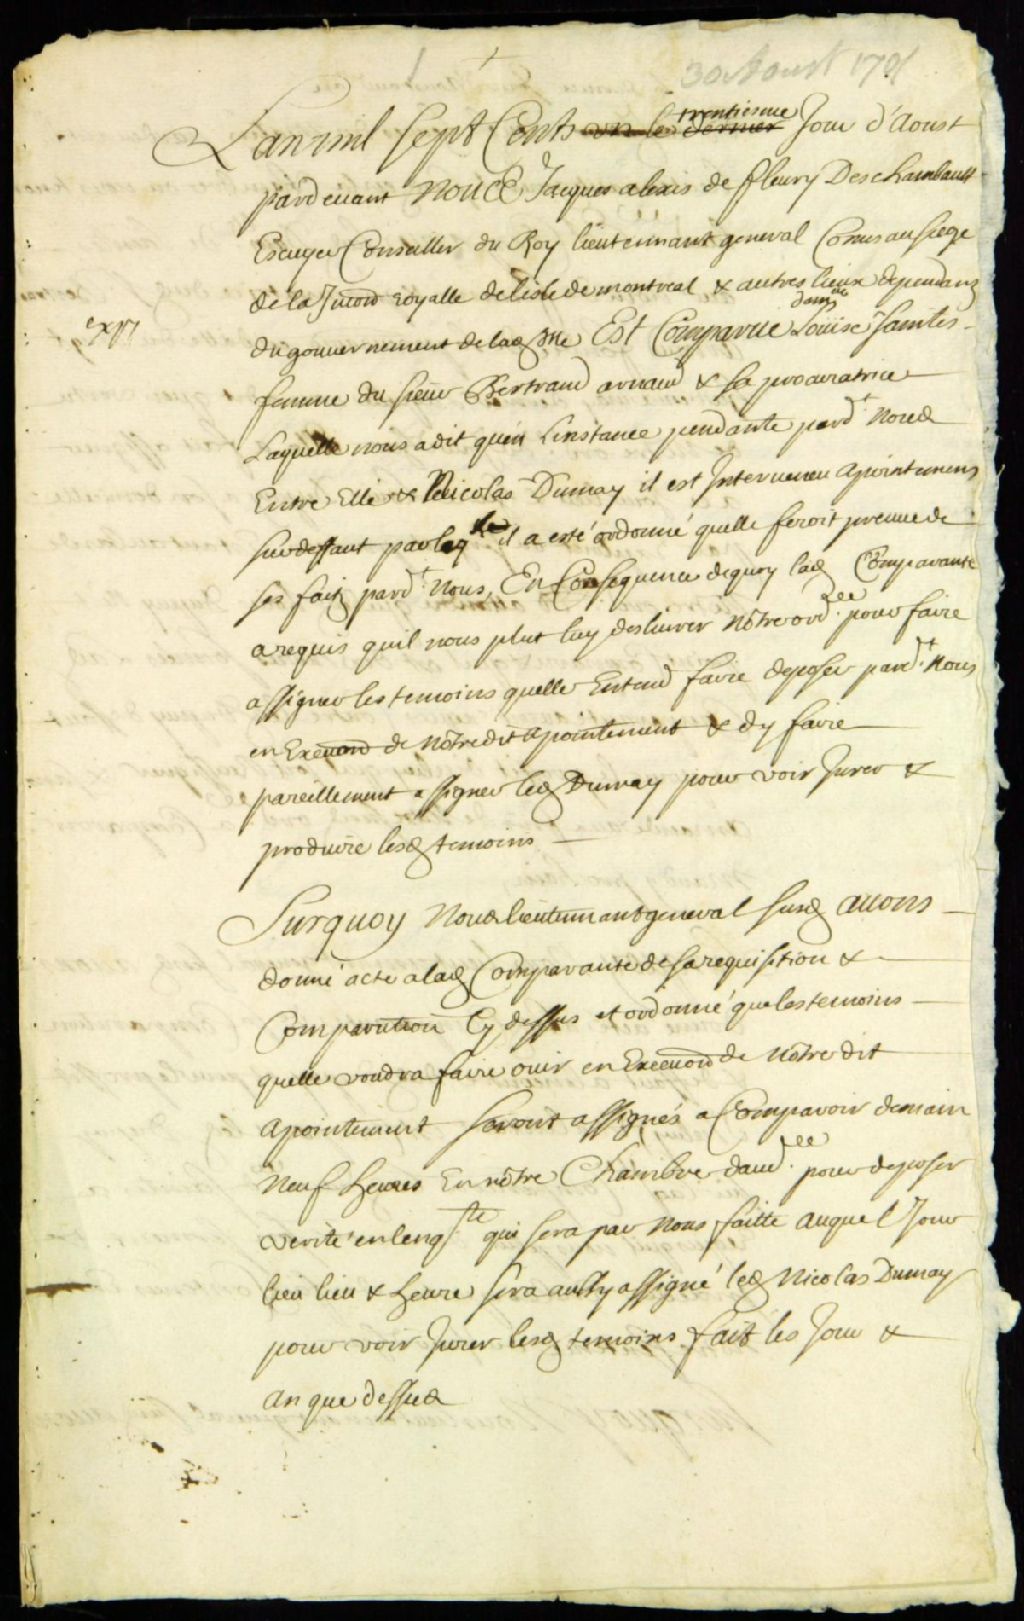 30 Aoust 1701
L'an mil sept Cents un le dernier trentiesme Jour d'Aoust
pardevant Nous Jacques alexis de fleury Deschambault
Escuyer Conseiller du Roy lieutennant general Comis au siege
de la Jurion royalle de lisle de montreal & autres lieux dependans
exp
du gouvernement de lad. Est Comparue dam Louise Saintes
femme du sieur Bertrand arnaud & sa procuratrice
Laquelle nous a dit qu'en L'instance pendante pard.t Nous
Entre Elle & Nicolas Dumay il est Intervenu apointement
sur deffaut par leq il a esté ordonné quelle feroit preuve de
ses faits pard.t Nous, En Consequence dequoy lad Comparante
a requis quil nous plut luy deslivrer Nôtre ord.ce pour faire
assigner les temoins quelle Entend faire deposer pard.t Nous
en Execuon de Nôtredit apointement & dy faire
pareillement assigner led Dumay pour voir Jurer &
produire lesd temoins
Surquoy Nous lieutennant general susd avons
donné acte a lad Comparante de sa requisition &
Comparution Cy dessus et ordonné que les temoins
quelle voudra faire ouir en Execuon de Nôtre dit
apointement seront assignés a Comparoir demain
Neuf heures En nôtre Chambre daud.ce pour deposer
verité en lenq.te qui sera par Nous faitte auquel Jour
lieu & heure sera aussy assigné led Nicolas Dumay
pour voir Jurer lesd temoins. fait les Jour &
an que dessus